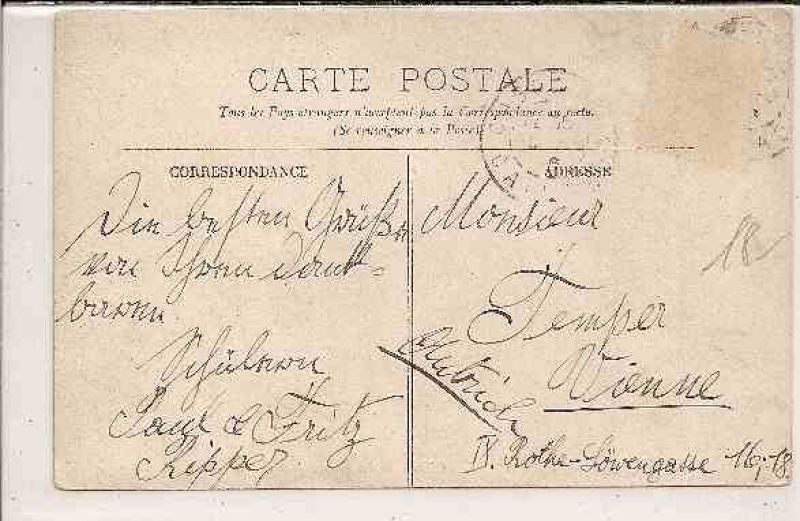 CARTE POSTALE
Tous les Pays étrangers n'acceptent pas la Correspondance au recto.
(Se renseigner à la Poste)
CORRESPONDANCE
Die besten Grüße
von Ihren dank-
baren
Schülern
Paul & Fritz
Ripper.
ADRESSE
Monsieur
Temper
Vienne
Autriche
IX. Rothe-Löwengasse 16,-18
18